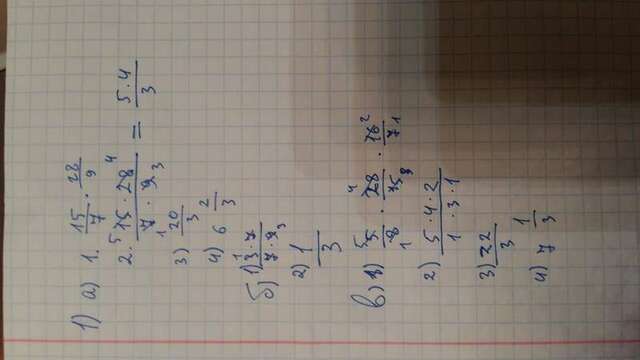 1) а) 1. 15/7 · 28/9
2. ⁵15 · 28⁴ / ₁7 · 9₃ = 5·4/3
3) 20/3
4) 6 2/3
б) 1) ¹3 · 7 / 7 · 9₃
2) 1/3
в) 1) ⁵5/8₁ · ⁴28/15₃ · 16²/7₁
2) 5 · 4 · 2 / 1 · 3 · 1
3) 22/3
4) 7 1/3